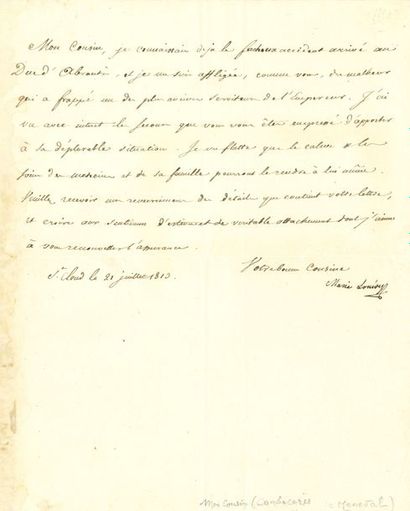 Mon Cousin, je connaissais déja le facheux accident arrivé au
Duc d'Abrantès, et je me suis affligée, comme vous, du malheur
qui a frappé un des plus anciens serviteurs de l'Empereur. J'ai
vu avec intérêt les secours que vous vous êtes empressé d'apporter
à sa déplorable situation. Je me flatte que le calme et les
soins des medecins et de sa famille pourront le rendre à lui même.
Veuillez recevoir mes remerciemens des détails que contient votre lettre,
et croire aux sentimens d'estime et de veritable attachement dont j'aime
à vous renouveller l'assurance.
St Cloud le 21 juillet 1813.
Votre bonne Cousine
Marie Louise
Mon Cousin (Cambacérès
Meneval)